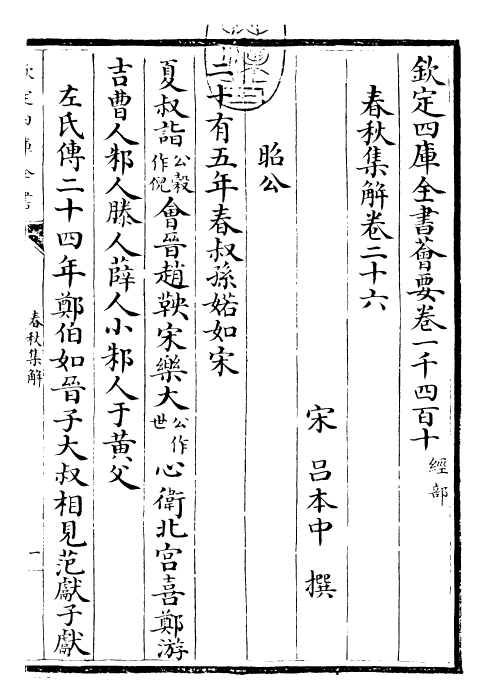 欽定四庫全書薈要卷一千四百十 經部
春秋集解卷二十六
宋 呂本中 撰
昭公
二十有五年春叔孫婼如宋
夏叔詣公穀作倪會晉趙鞅宋樂大公作世心衛北宮喜鄭游
吉曹人邾人滕人薛人小邾人于黃父
左氏傳二十四年鄭伯如晉子大叔相見范獻子獻
春秋集解
一